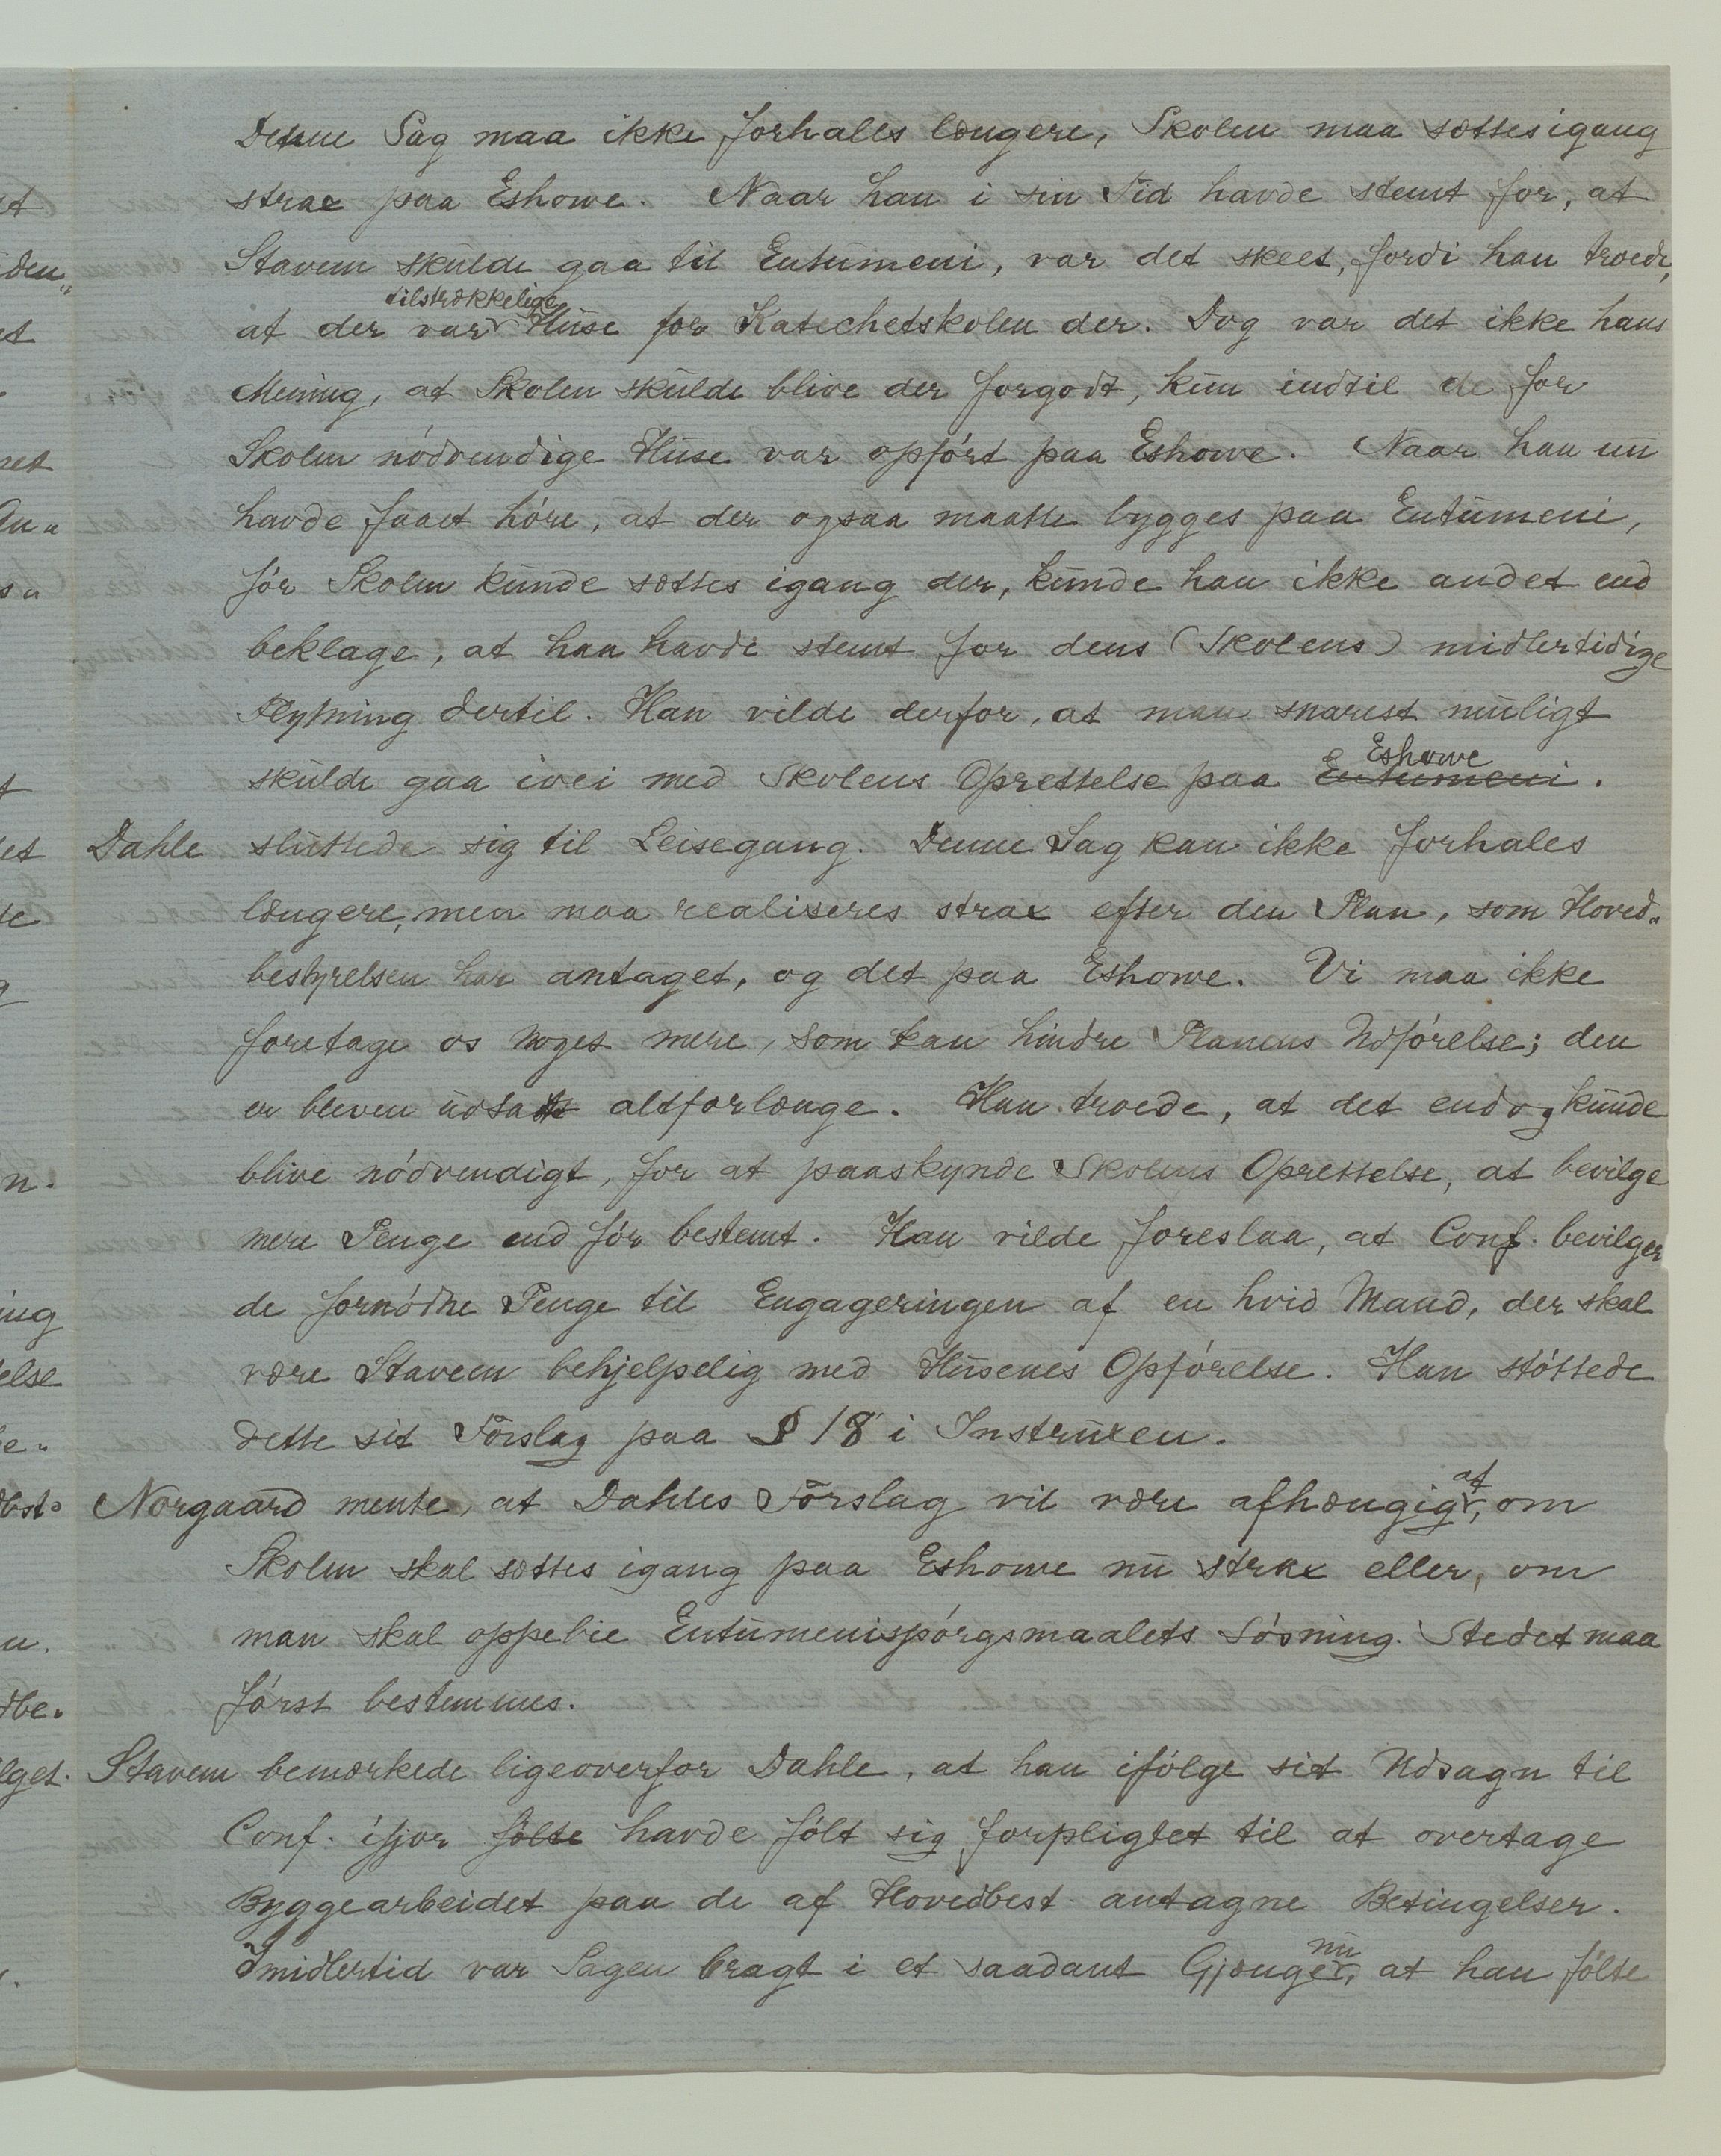 Denne Sag maa ikke forhales længere, Skolen maa sættes igang
strax paa Eshowe. Naar han i sin Tid havde stemt for, at
Stavem skulde gaa til Entumeni, var det skeet, fordi han troede,
tilstrækkelige
at der var Huse for Katechetskolen der. Dog var det ikke hans
Mening, at Skolen skulde blive der forgodt, kun indtil de for
Skolen nódvendige Huse var opfórt paa Eshowe. Naar han nu
havde faaet hóre, at der ogsaa maatte bygges paa Entumeni,
fór Skolen kunde sættes igang der, kunde han ikke andet end
beklage, at han havde stemt for dens (Skolens) midlertidige
Flytning dertil. Han vilde derfor, at man snarest muligt
Eshowe
skulde gaa ivei med Skolens Oprettelse paa Entumeni.
Dahle sluttede sig til Leisegang. Denne Sag kan ikke forhales
længere, men maa realiseres strax efter den Plan, som Hoved„
bestyrelsen har antaget, og det paa Eshowe. Vi maa ikke
foretage os noget mere, som kan hindre Planens Udfórelse; den
er bleven udsat altforlænge. Han troede, at det endog kunde
blive nódvendigt, for at paaskynde Skolens Oprettelse, at bevilge
mere Penge end fór bestemt. Han vilde foreslaa, at Conf. bevilger
de fornódne Penge til Engageringen af en hvid Mand, der skal
være Stavem behjelpelig med Husenes Opfórelse. Han stóttede
dette sit Forslag paa § 18 i Instruxen.
Norgaard mente, at Dahles Forslag vil være afhængig af, om
Skolen skal sættes igang paa Eshowe nu strax eller, om
man skal oppebie Entumenispórgsmaalets Lósning. Stedet maa
fórst bestemmes.
Stavem bemærkede ligeoverfor Dahle, at han ifólge sit Udsagn til
Conf. ifjor fólte havde fólt sig forpligtet til at overtage
Byggearbeidet paa de af Hovedbest. antagne Betingelser.
nu
Imidlertid var Sagen bragt i et saadant Gjænge, at han fólte